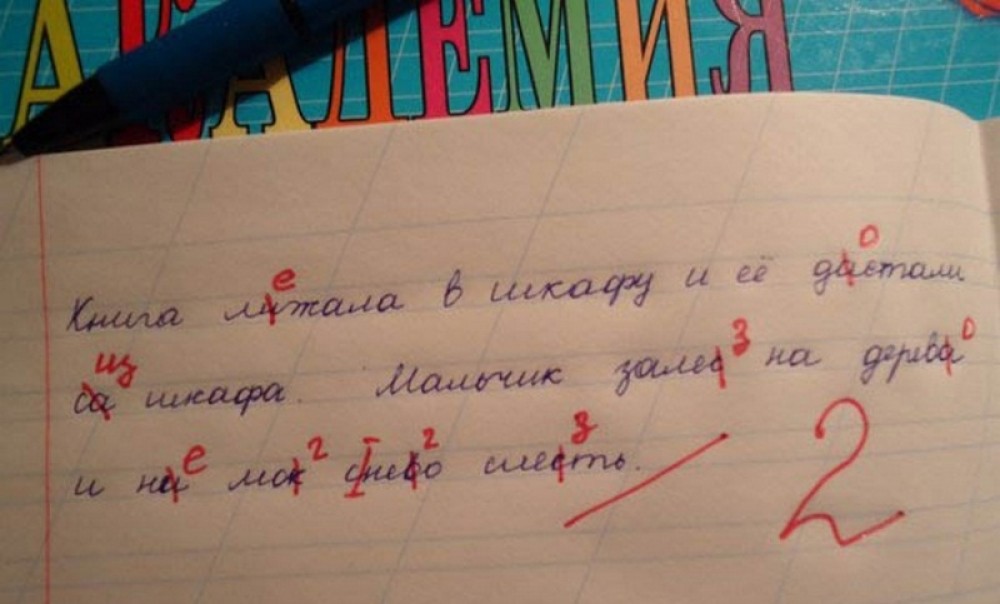 АКАДЕМИЯ
е о
Книга лижала в шкафу и её дастали
из з о
са шкафа. Мальчик залес на дерева
е г г з
и на мок снево слесть.
2